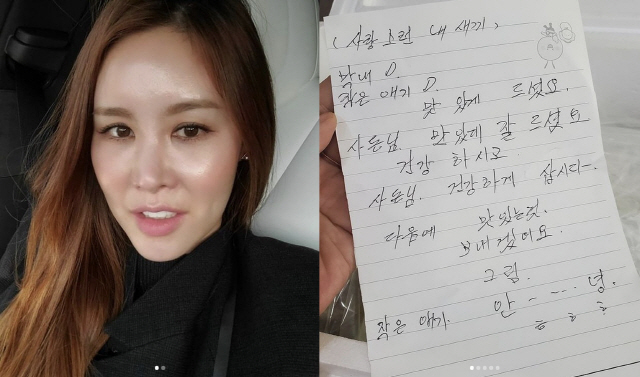 ( 사랑 스런 내 새끼 )
막내 O.
작은 애기 O.
맛 있게 드셧요.
사돈님. 맛있데 잘 드셧요
건강 하시고
사돈님. 건강하게 삽시다~.
다음에 맛있는것.
보내겠어요.
그럼.
안 ~ ... 녕.
작은 애기. ㅎ ㅎ ㅎ